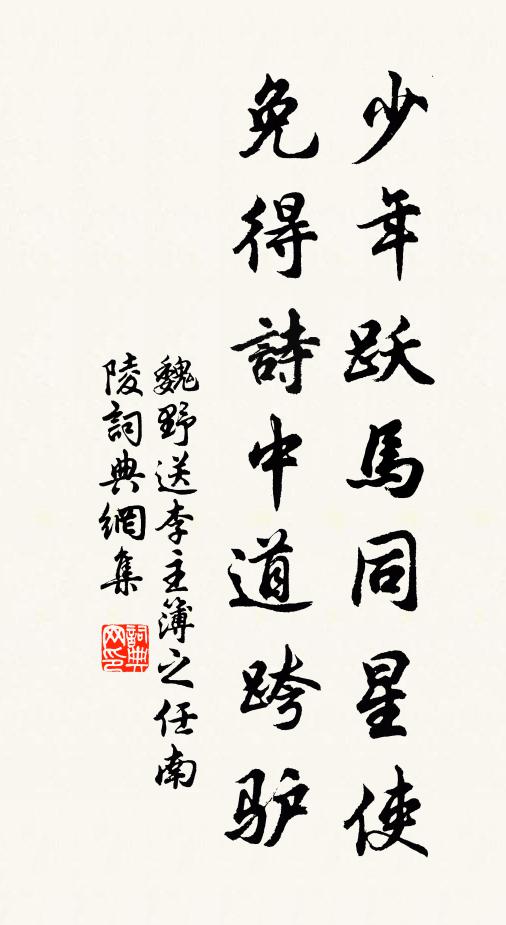 少年跃馬同星使
免得詩中道跨驴
魏野送李主簿之任南
陵詞典網集
詞典
网印